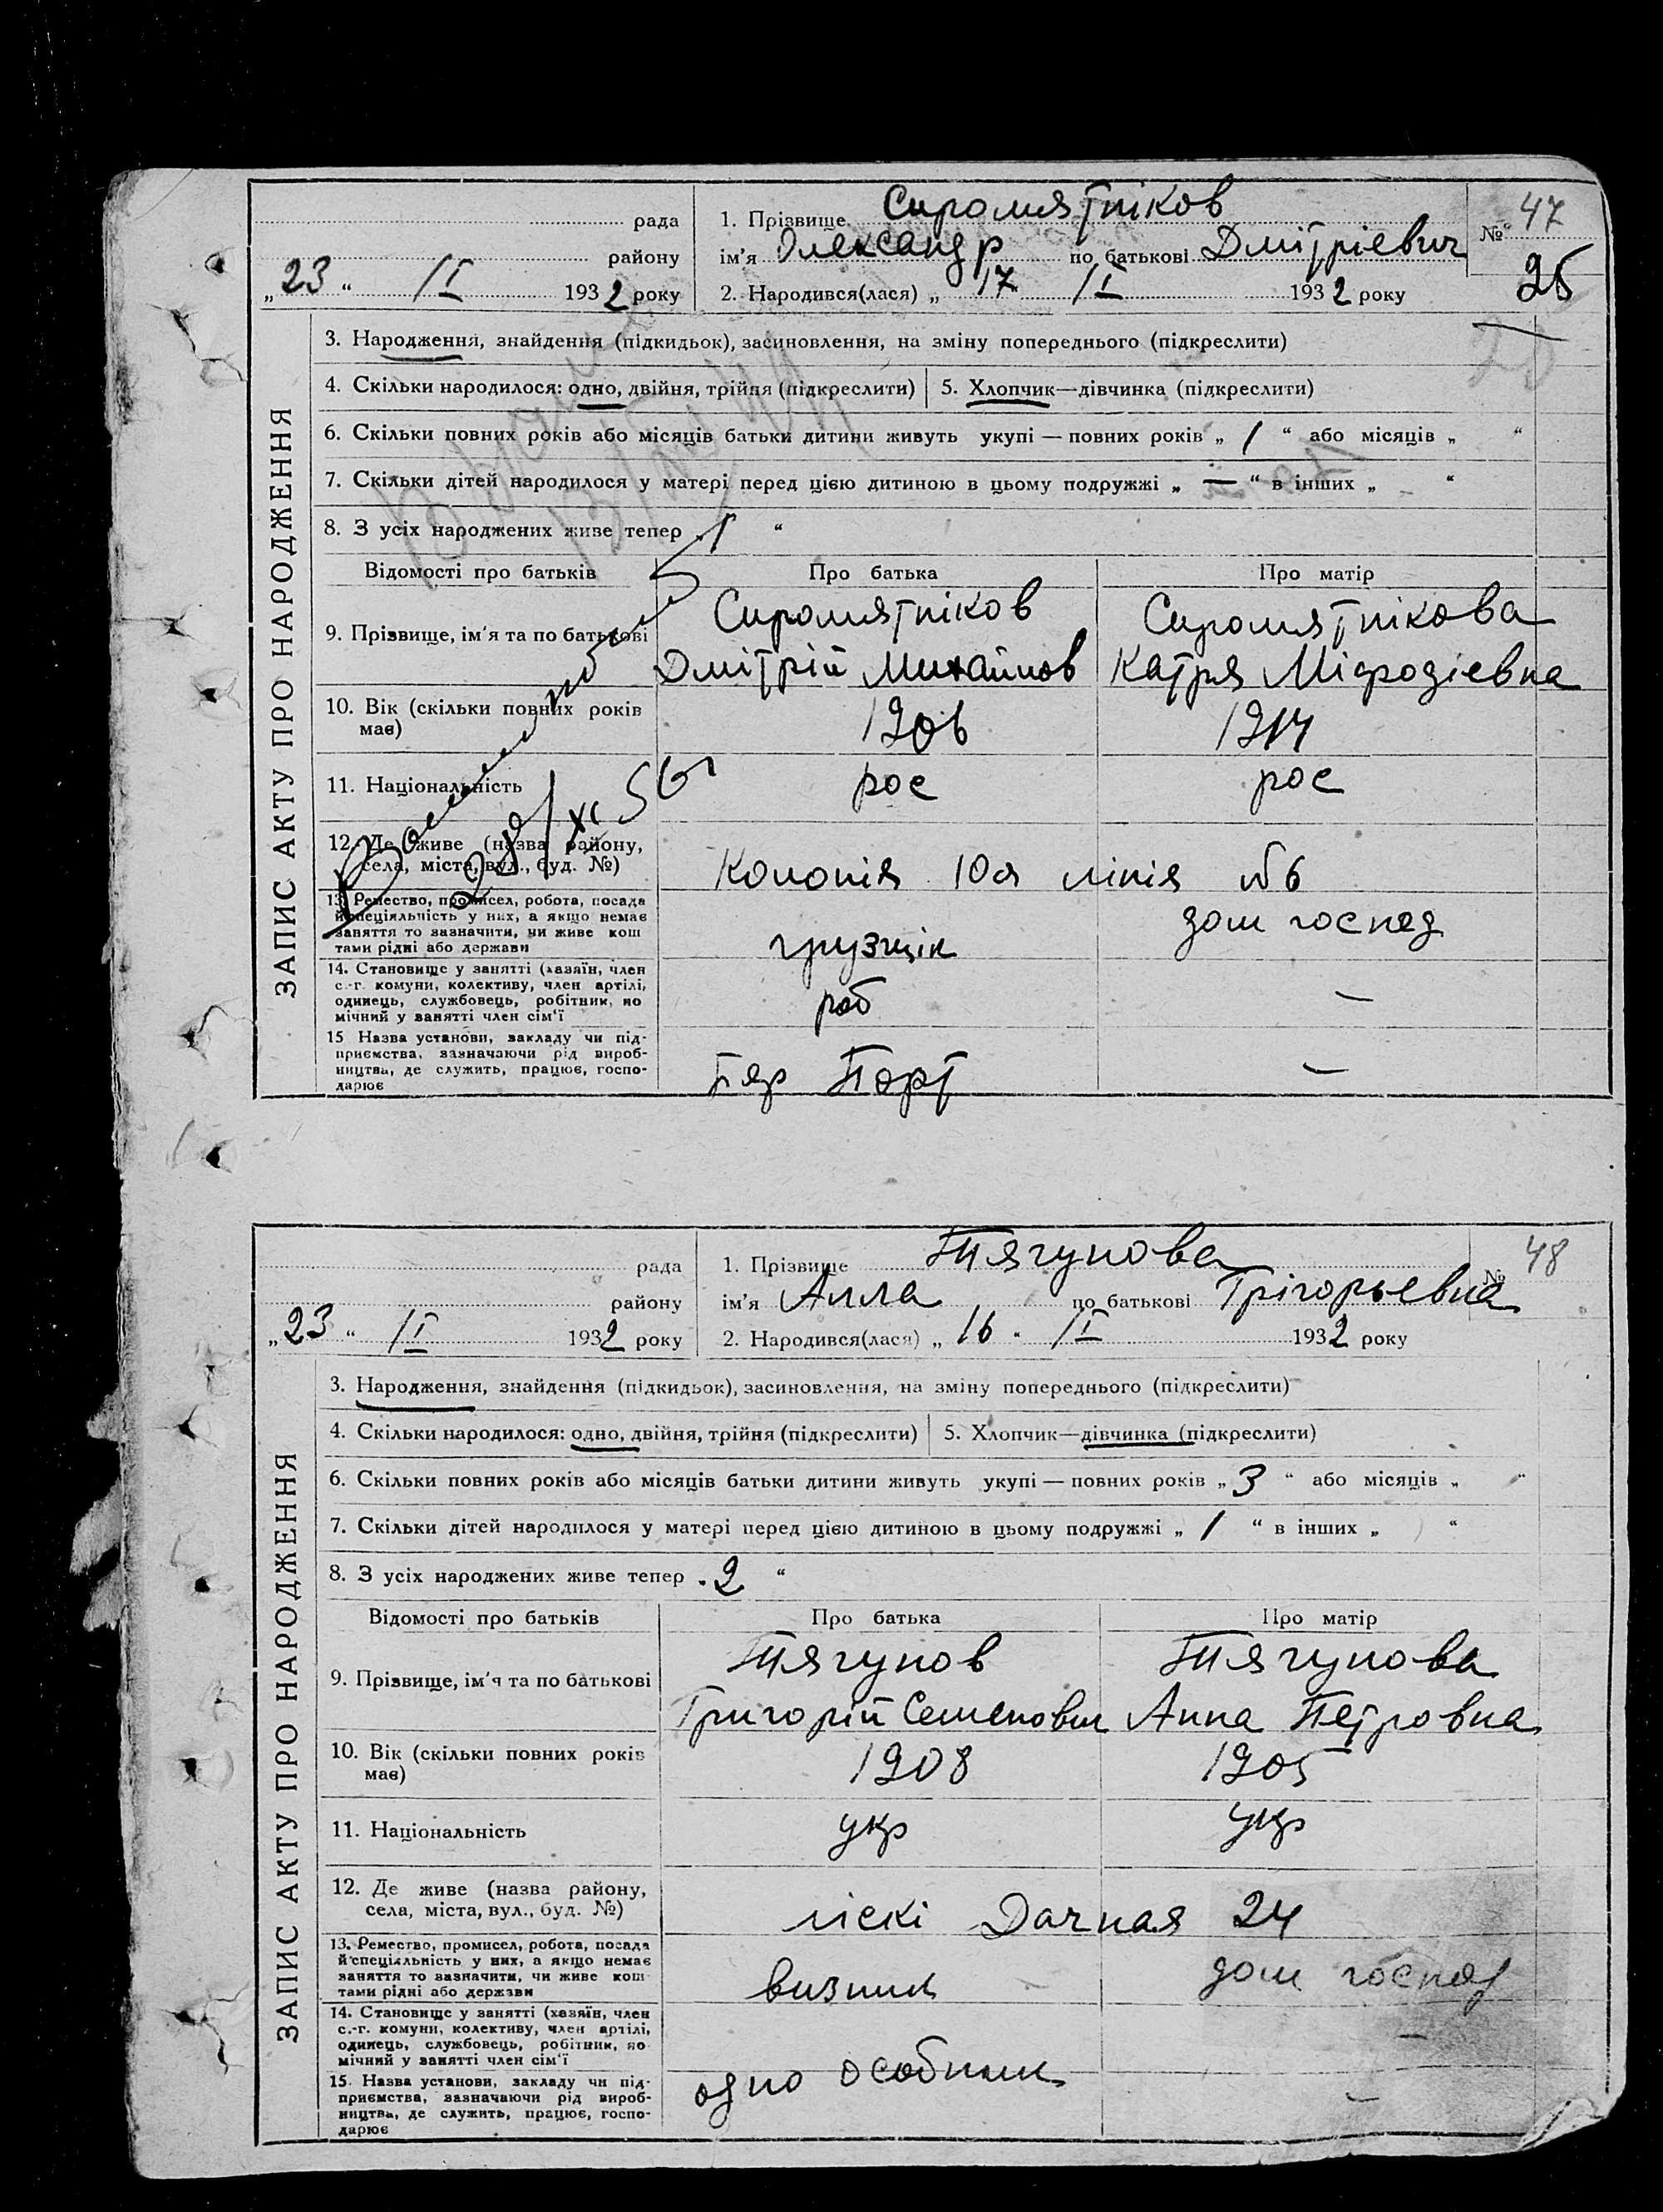 рада
района
„23“ II 1932 року
1. Прізвище Сиромятніков
ім'я Олександр по батькові Дмітріевич
2. Народився(лася) „17 II 1932 року
№ 47
25
ЗАПИС АКТУ ПРО НАРОДЖЕННЯ
3. Народження, знайдення (підкидьок), засиновлення, на зміну попереднього (підкреслити)
4. Скільки народилося: одно, двійня, трійня (підкреслити)
5. Хлопчик—дівчинка (підкреслити)
6. Скільки повних років або місяців батьки дитини живуть укупі — повних років „ 1 “ або місяців „ “
7. Скільки дітей народилося у матері перед цією дитиною в цьому подружжі „ — “ в інших „ - “
8. З усіх народжених живе тепер „1 “
Відомості про батьків
Про батька
Про матір
9. Прізвище, ім'я та по батькові
Сиромятніков
Дмітрій Михайлов
Сиромятнікова
Катря Мефодіевна
10. Вік (скільки повних років
має)
1906
1914
11. Національність
рос
рос
12. Де живе (назва району,
села, міста, вул., буд. №)
Колонія 10я лінія №6
13. Ремество, промисел, робота, посада
й спеціяльність у них, а якщо немає
заняття то зазначити, чи живе кош
тами рідні або держави
грузщік
дом господ
14. Становище у занятті (хазяїн, член
с.-г. комуни, колективу, член артілі,
одинець, службовець, робітник, по
мічний у занятті член сім'ї
роб
—
15 Назва установи, закладу чи під-
приємства, зазначаючи рід вироб-
ництва, де служить, працює, госпо-
дарює
Порт
—
рада
району
„23“ II 1932 року
1. Прізвище Тягунова
ім'я Алла по батькові Грігорьевна
2. Народився(лася) „16“ II 1932 року
№ 48
ЗАПИС АКТУ ПРО НАРОДЖЕННЯ
3. Народження, знайдення (підкидьок), засиновлення, на зміну попереднього (підкреслити)
4. Скільки народилося: одно, двійня, трійня (підкреслити)
5. Хлопчик—дівчинка (підкреслити)
6. Скільки повних років або місяців батьки дитини живуть укупі — повних років „3 “ або місяців „ “
7. Скільки дітей народилося у матері перед цією дитиною в цьому подружжі „ 1 “ в інших „ “
8. З усіх народжених живе тепер „2 “
Відомості про батьків
Про батька
Про матір
9. Прізвище, ім'я та по батькові
Тягунов
Григорій Семенович
Тягунова
Анна Петровна
10. Вік (скільки повних років
має)
1908
1905
11. Національність
укр
укр
12. Де живе (назва району,
села, міста, вул., буд. №)
ліскі Дачная 24
13. Ремество, промисел, робота, посада
й спеціяльність у них, а якщо немає
заняття то зазначити, чи живе кош
тами рідні або держави
визник
дом господ
14. Становище у занятті (хазяїн, член
с.-г. комуни, колективу, член артілі,
одинець, службовець, робітник, по
мічний у занятті член сім'ї
—
15. Назва установи, закладу чи під-
приємства, зазначаючи рід вироб-
ництва, де служить, працює, госпо-
дарює
одно особник
—